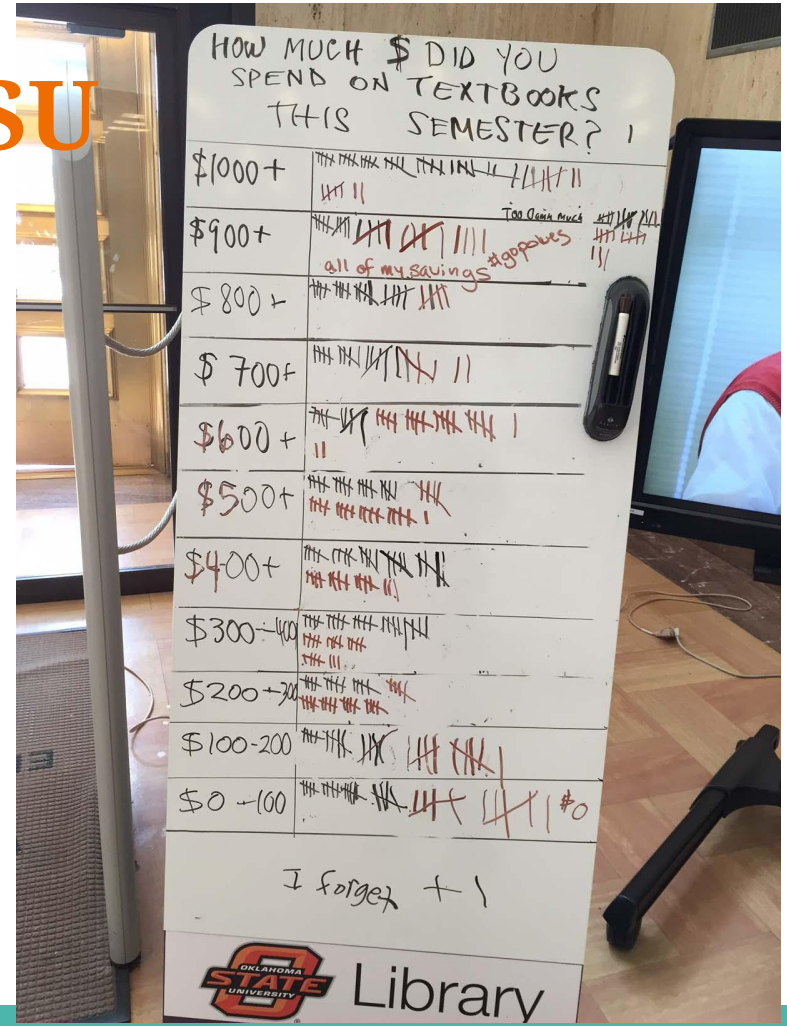 SU
HOW MUCH $ DID YOU
SPEND ON TEXTBOOKS
THIS SEMESTER?
$1000+
Too Damn much
$900+
all of my savings #gopokes
$800+
$700+
$600+
$500+
$400+
$300-400
$200-300
$100-200
$0-100 $0
I forget +1
OKLAHOMA
STATE
UNIVERSITY
Library